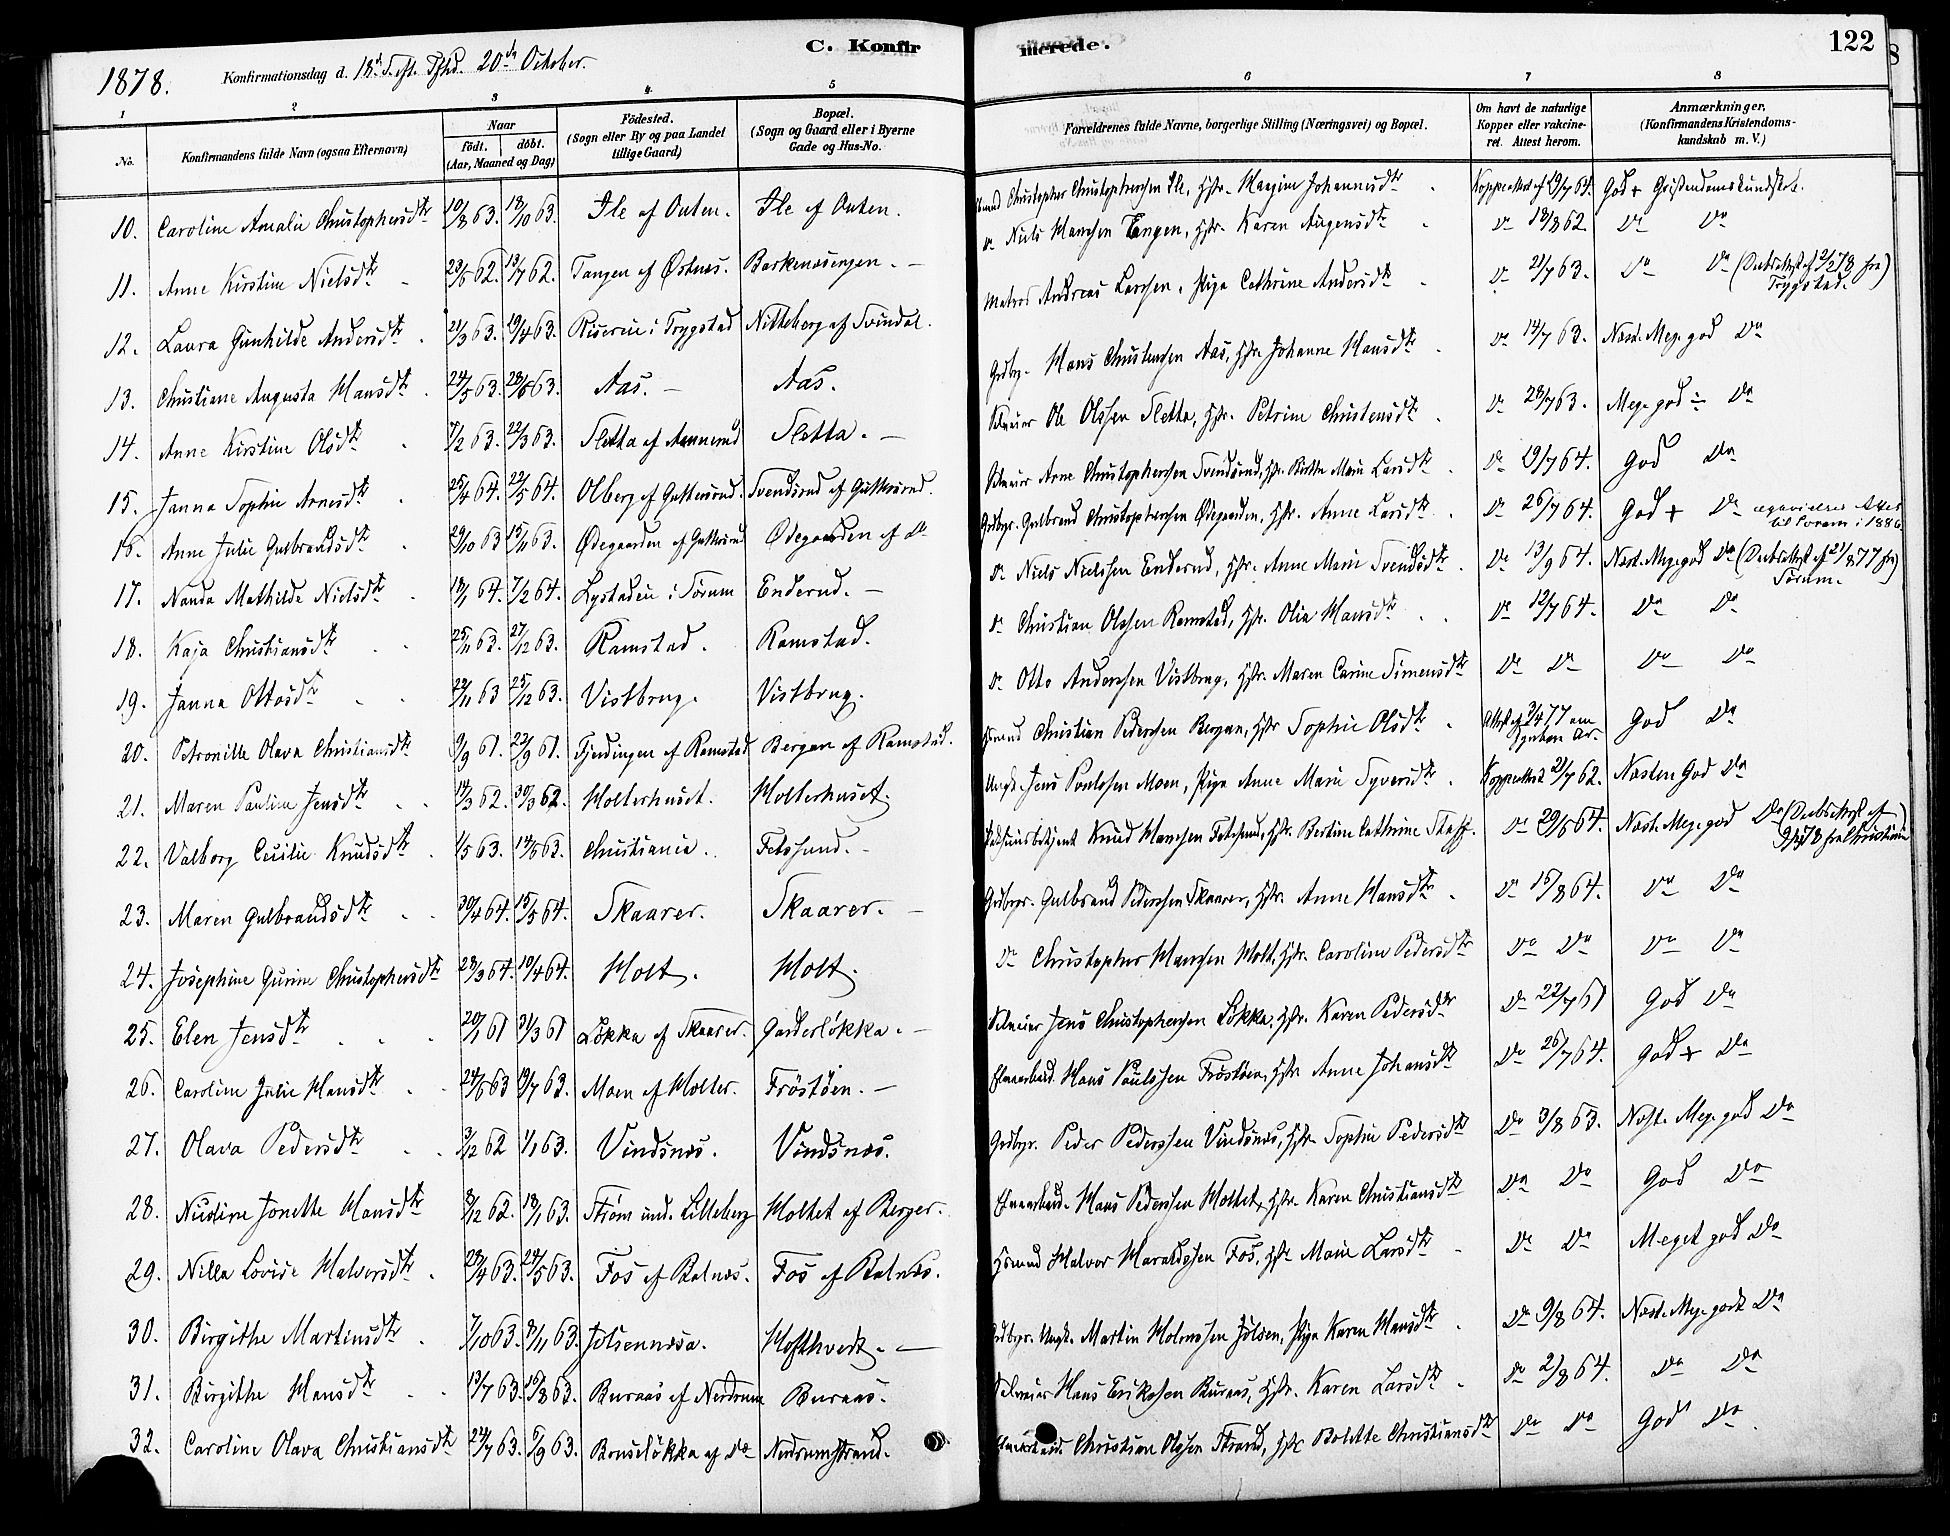 C. Konfirmerede. 122
1878. Konfirmationsdag d. 18de Søft. Tfhd. 20de October.
1 2 3 4 5 6 7 8
No. Konfirmandens fulde Navn (ogsaa Efternavn) Naar født. døbt. (Aar, Maaned og Dag) Fødested. (Sogn eller By og paa Landet tillige Gaard) Bopæl. (Sogn og Gaard eller i Byerne Gade og Hus-No. Forældrenes fulde Navne, borgerlige Stilling (Næringsvei) og Bopæl. Om havt de naturlige Kopper eller vakcineret. Attest herom. Anmærkninger. (Konfirmandens Kristendomskundskab m. V.)
10. Caroline Amalie Christophersdtr 10/8 63. 18/10 63. Ile af Outen. Ile af Outen. Christopher Christophersen Ile, Hstr. Margine Johannesdtr Koppeattest af 29/7 64. God + Cristendomskundskab.
11. Anne Kirstine Nielsdtr 23/5 62. 13/7 62. Tangen af Østnes. Barkenæsengen. Do Niels Hansen Engen, Hstr. Karen Augensdtr Do 18/8 62 Do Do
12. Laura Gunhilde Andersdtr 21/3 63. 19/4 63. Riserei i Trygstad Nitteberg af Svindal. Matros Andreas Larsen, Pige Cathrine Andersdtr Do 21/7 63. Do Do (Daabsattest af 2/2 78 fra) Trygstad.
13. Christiane Augusta Hansdtr 24/5 63. 28/6 63. Aas. Aas. Grdbr. Hans Christensen Aas, Hstr. Johanne Hansdtr Do 14/7 63. Næst. Meg. god Do
14. Anne Kirstine Olsdtr 7/2 63. 22/3 63. Sletta af Annerud Sletta. Selveier Ole Olssen Sletta, Hstr. Petrine Christensdtr Do 28/7 63. Meg. god ÷ Do
15. Janna Sophie Arnesdtr 25/4 64. 22/5 64. Olberg af Guttersrud. Svendsrud af Guttersrud. Selveier Arne Christophersen Svendsrud, Hstr. Berthe Marie Larsdtr Do 29/7 64. God Do
16. Anne Julie Gulbrandsdtr 29/10 63 15/11 63. Ødegaarden af Guttersrud Ødegaarden af Do Grdbgr. Gulbrand Christophersen Ødegaarden, Hstr. Anne Larsdtr Do 26/7 64. God + Do Attest til Sørum i 1886
17. Nanda Mathilde Nielsdtr 18/1 64. 7/2 64. Lystadeie i Sørum Enderud. Do Niels Nielssen Enderud, Hstr. Anne Marie Svendsdtr Do 13/9 64. Næst. Meg. god Do (Daabsattest af 21/8 77 fra) Sørum.
18. Kaja Christiansdtr 25/11 63. 27/12 63. Ramstad. Ramstad. Do Christian Olssen Ramstad, Hstr. Olia Hansdtr Do 12/7 64. Do Do
19. Janna Ottosdtr 22/11 63 25/12 63. Vistbrug. Vistbrug. Do Otto Andersen Vistbrug, Hstr. Maren Carine Simensdtr Do Do Do Do
20. Petronille Olava Christiansdtr 9/9 61. 22/9 61. Fjerdingen af Ramstad Bergan af Ramstad. Hsmand Christian Pedersen Bergan, Hstr Sophie Olsdtr Attest af 3/4 77 om God Do
21. Maren Pauline Jensdtr 14/3 62. 30/3 62. Holterhuset. Holterhuset. Ungk. Jens Poulsen Moen, Pige Anne Marie Syversdtr Koppeattest 21/7 62. Næsten God Do
22. Valborg Cecilie Knudsdtr 1/5 63. 14/5 63. Christiania. Fetsund. Knud Hansen Fetsund, Hstr. Bertine Cathrine Staff. Do 29/6 64. Næst. Meg. god Do (Daabsattest af 78 fra Christiania
23. Maren Gulbrandsdtr 30/4 64. 15/5 64. Skaarer. Skaarer. Grdbgr. Gulbrand Pedersen Skaarer, Hstr. Anne Hansdtr Do 16/8 64. Do Do
24. Josephine Gurine Christophersdtr 28/3 64. 10/4 64. Holt. Holt. Do Christopher Hansen Holt, Hstr. Caroline Pedersdtr Do Do Do Do
25. Elen Jensdtr 20/1 61 31/3 61 Løkka af Skaarer. Garderløkka. Selveier Jens Christophersen Løkka, Hstr. Karen Pedersdtr Do 22/7 61 God Do
26. Caroline Julie Hansdtr 24/6 63 19/7 63. Moen af Holter. Frøstøen. Hans Poulssen Frøstøen, Hstr Anne Johansdtr Do 26/7 64. God + Do
27. Olava Pedersdtr 3/12 62 1/1 63. Vindsnæs. Vindsnæs. Grdbgr. Peder Pedersen Vindsnæs, Hstr. Sophie Pedersdtr Do 3/8 63. Næst. Meg. god Do
28. Nicoline Jonette Hansdtr 8/12 62. 18/1 63. Strøm und. Lilleberg Holtet af Berger. Hans Pedersen Holtet, Hstr. Karen Christiansdtr Do Do God Do
29. Nilla Lovise Halvorsdtr 28/4 63. 24/5 63. Fos af Balnæs. Fos af Balnæs. Hsmand Halvor Haraldsen Fos, Hstr Marie Larsdtr Do Do Meget god Do
30. Birgithe Martinsdtr 7/10 63. 8/11 63. Jølsennæsa. Hofthvedt. Grdbgr. Ungk. Martin Holmsen Jølsen, Pige Karen Hansdtr Do 9/8 64. Næst. Meg. godt Do
31. Birgithe Hansdtr 13/7 63. 16/8 63. Buraas af Nerdrum Buraas. Selveier Hans Eriksen Buraas, Hstr. Karen Larsdtr Do 2/8 64. Do Do
32. Caroline Olava Christiansdtr 24/7 63. 6/9 63. Bruseløkka af Do Nerdrumstrand. Christian Olssen Strand, Hstr Bolette Christiansdtr Do Do God Do